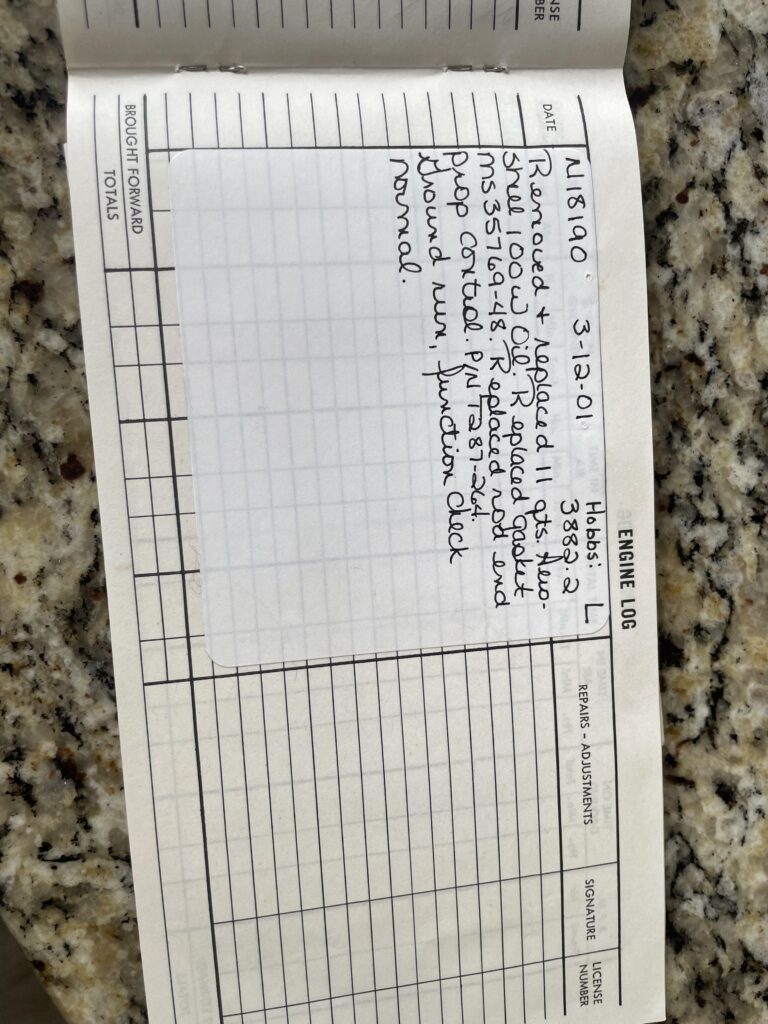 NSE
BER
ENGINE LOG
DATE
REPAIRS - ADJUSTMENTS
SIGNATURE
LICENSE
NUMBER
N18190 3-12-01 Hobbs: L
3882.2
Removed + replaced 11 qts. Aero-
shell 100W Oil. Replaced gasket
MS35769-48. Replaced rod end
prop control. P/N T287-264.
Ground run, function check
normal.
BROUGHT FORWARD
TOTALS